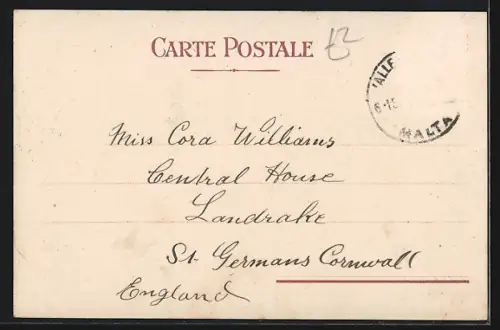 CARTE POSTALE
VALLE
6-15
MALTA
Miss Cora Williams
Central House
Landrake
St. Germans Cornwall
England